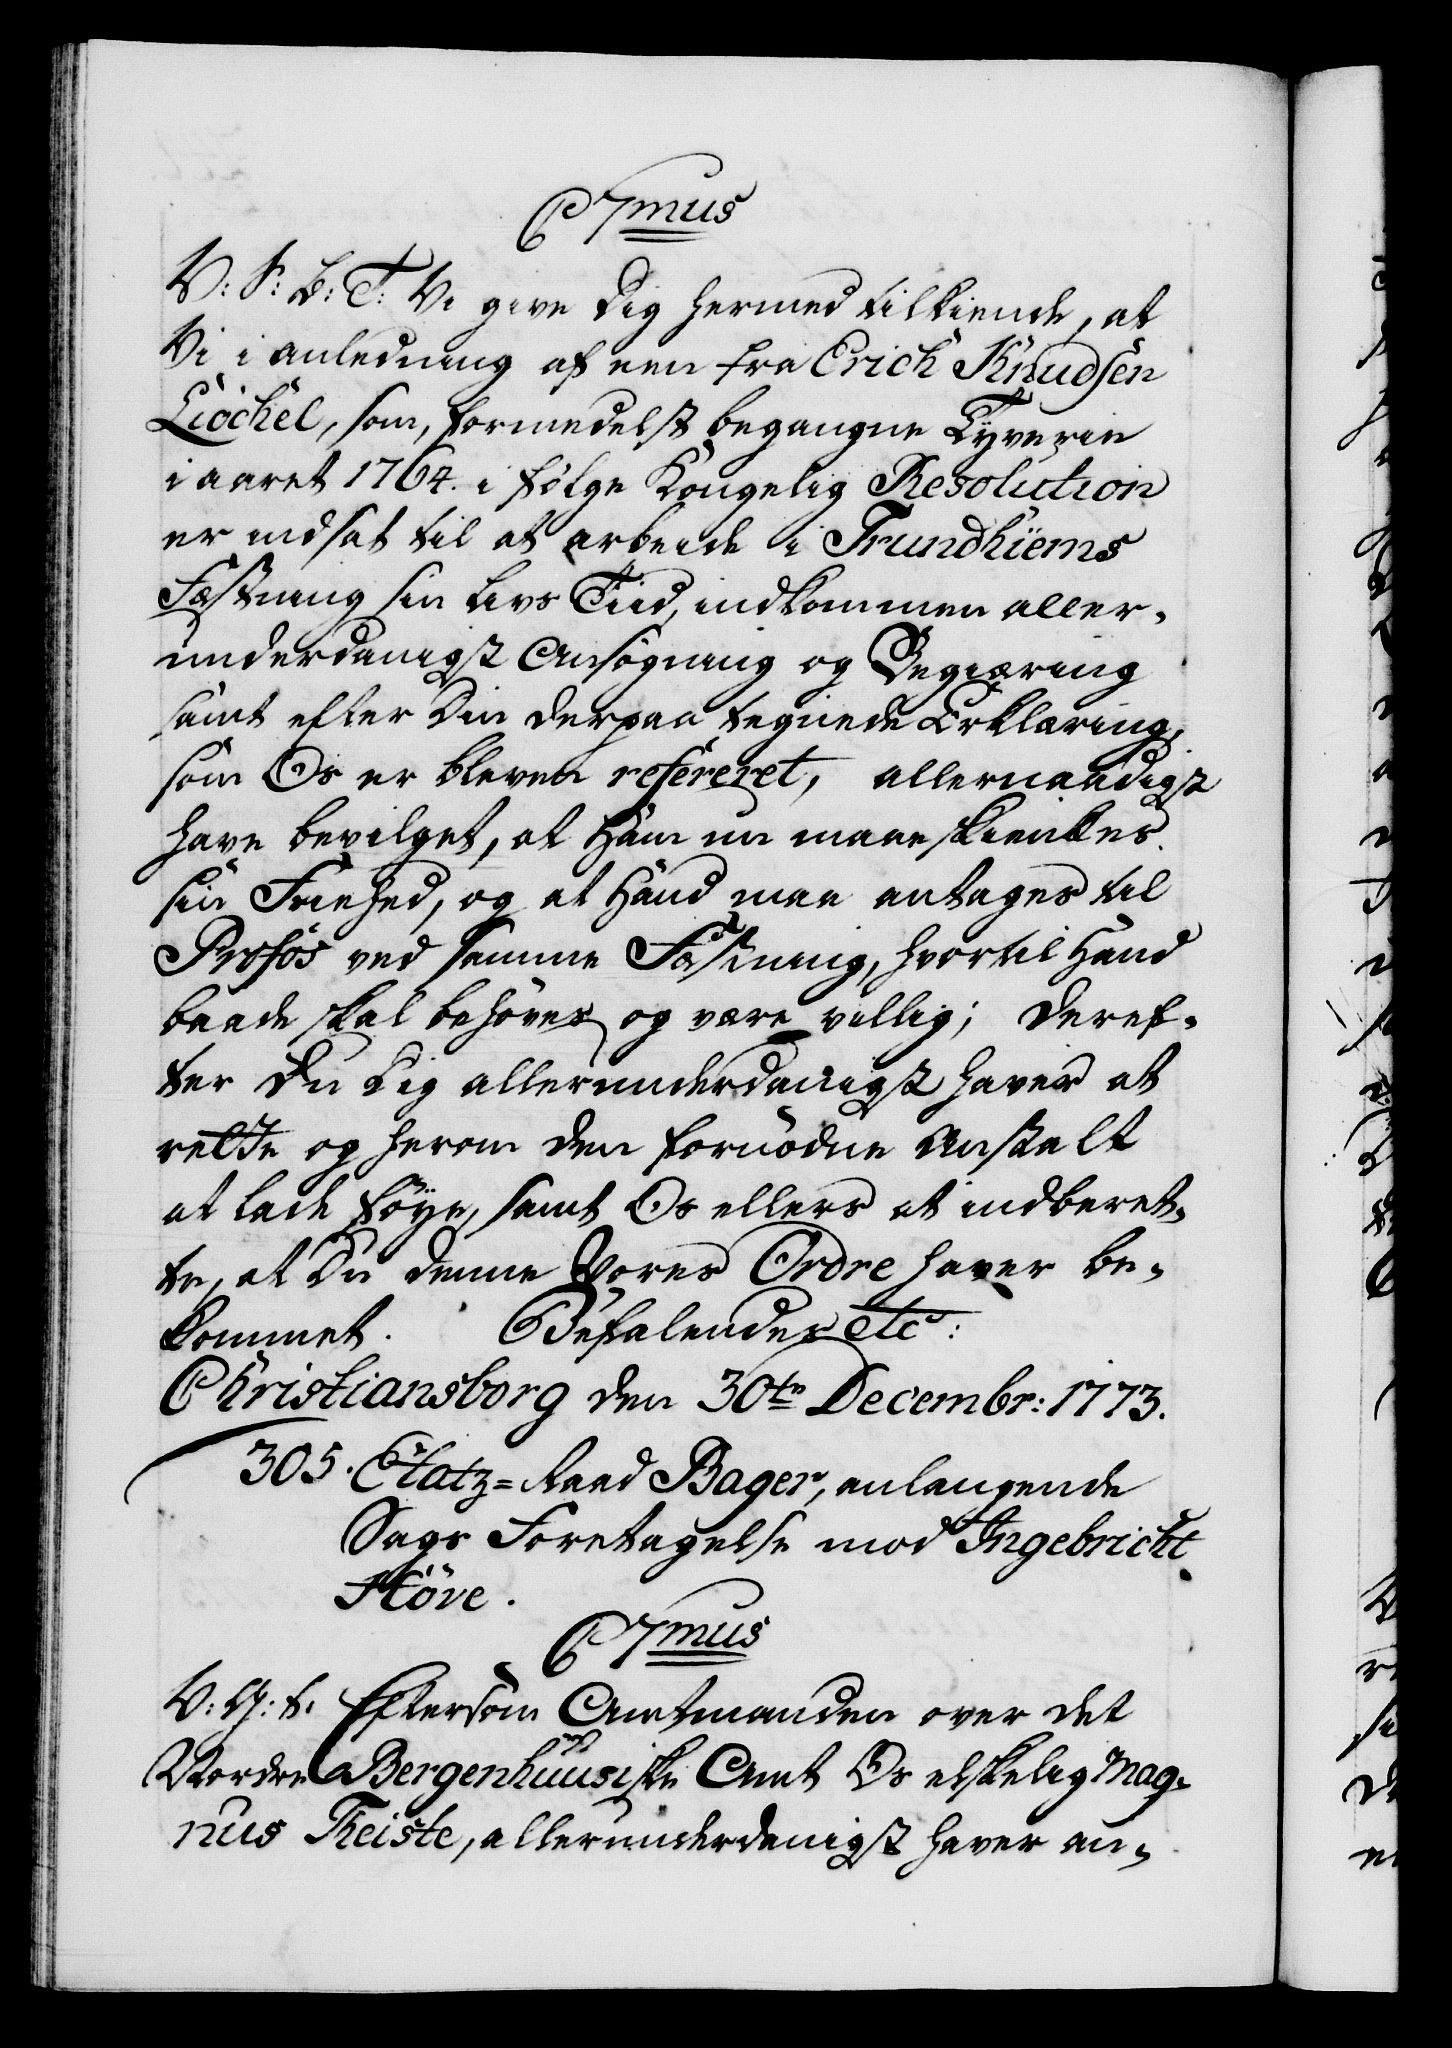 C 7mus
V: S: B: T: Vi give Dig hermed tilkiende, at
Vi i anledning af een fra Erich Knudsen
Liöchel, som, formedelst begangne Tyverie
i aaret 1764. i følge Kongelig Resolution
er indsat til at arbeide i Trundhiems
Fæstning sin Livs Tiid, indkommen aller-
underdanigst Ansögning og Begiæring
samt efter Din derpaa tegnede Erklæring,
som Os er bleven refereret, allernaadigst
have bevilget, at Ham nu maae skienkes
sin Friehed, og at Hand maa antages til
Profos ved samme Fæstning, hvortil Hand
baade skal behöves og være villig; Deref-
ter Du Dig allerunderdanigst haver at
rette og herom den fornödne Anstalt
at lade föye, samt Os ellers at indberet-
te, at Du denne Vores Ordre haver be-
kommet. Befalendes etc:
Christiansborg den 30te Decembr: 1773.
305. Etatz-Raad Bager, anlangende
Sags Foretagelse mod Ingebricht
Höve.
C 7mus
V: G: T: Eftersom Amtmanden over det
Nordre Bergenhuusiske Amt Os elskelig Mag-
nus Theiste, allerunderdanigst haver an-